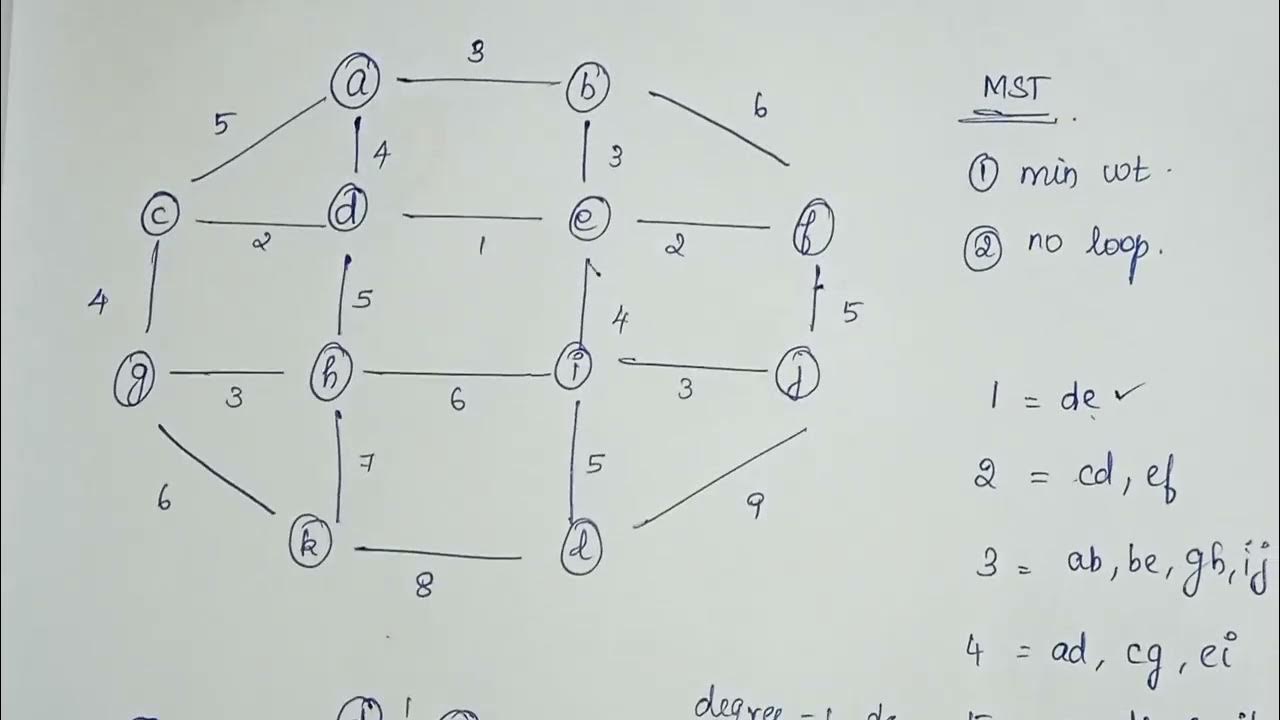 3
a
b
6
5
4
3
c
d
e
f
2
1
2
4
5
4
5
g
h
i
j
3
6
3
6
7
5
9
k
l
8
MST
① min wt.
② no loop.
1 = de ✓
2 = cd, ef
3 = ab, be, gh, ij
4 = ad, cg, ei
1
degree - 1